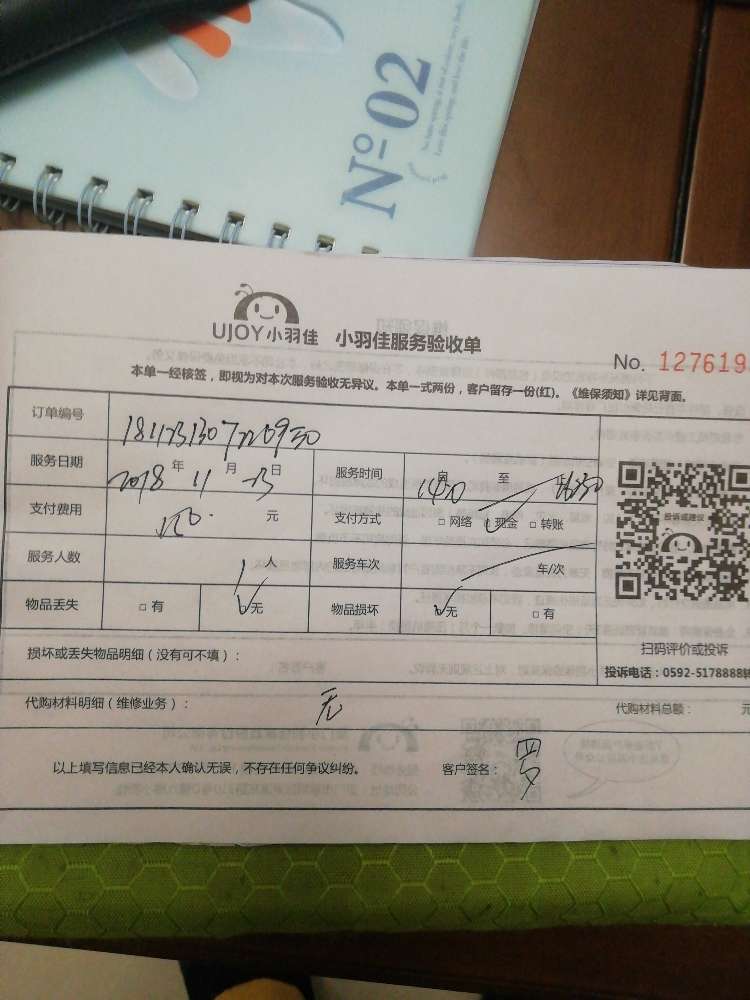 Nº02
UJOY小羽佳 小羽佳服务验收单
No. 1276193
本单一经核签，即视为对本次服务验收无异议。本单一式两份，客户留存一份(红)。《维保须知》详见背面。
订单编号
服务日期 2018 年 11 月 23 日 服务时间 1450 自 至
支付费用 元 支付方式 □ 网络 现金 □ 转账
投诉或建议
服务人数 1 人 服务车次 车/次
物品丢失 □ 有 √无 物品损坏 √无 □ 有
扫码评价或投诉
损坏或丢失物品明细（没有可不填）：
投诉电话：0592-5178888转
代购材料明细（维修业务）： 无 代购材料总额： 元
以上填写信息已经本人确认无误，不存在任何争议纠纷。 客户签名： 罗